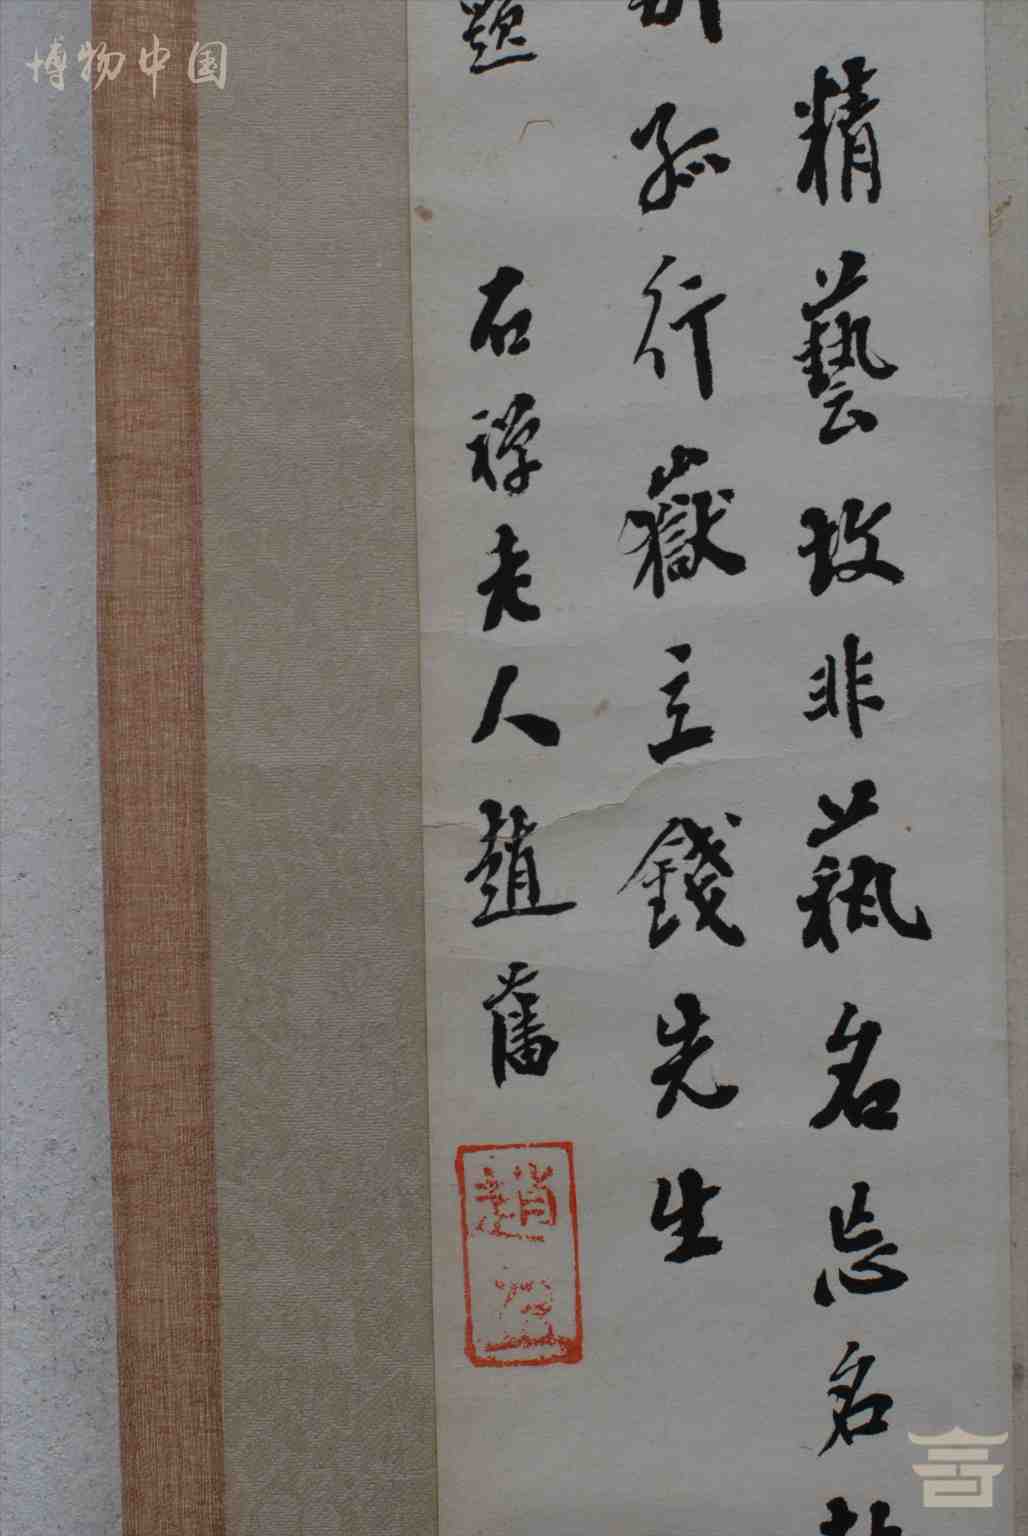 精藝故非藝名忘名故
孤行嶽立錢先生
題 石禪老人趙藩
趙
博物中国